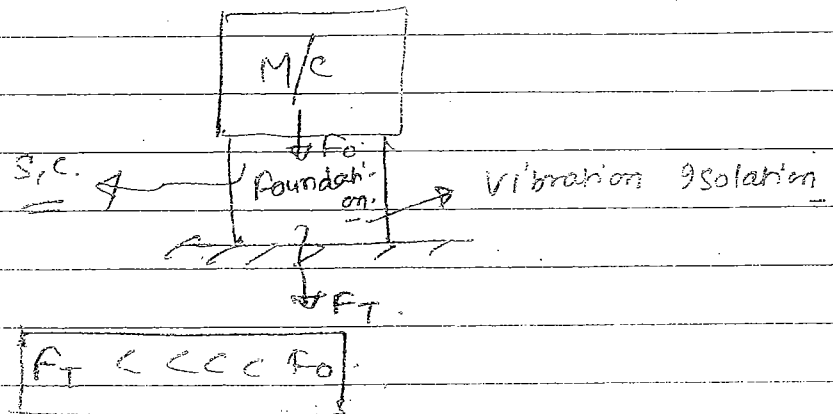 M/C
F₀.
S, C.
Foundati-
on.
Vibration Isolation
F_T.
F_T < < < < F₀.